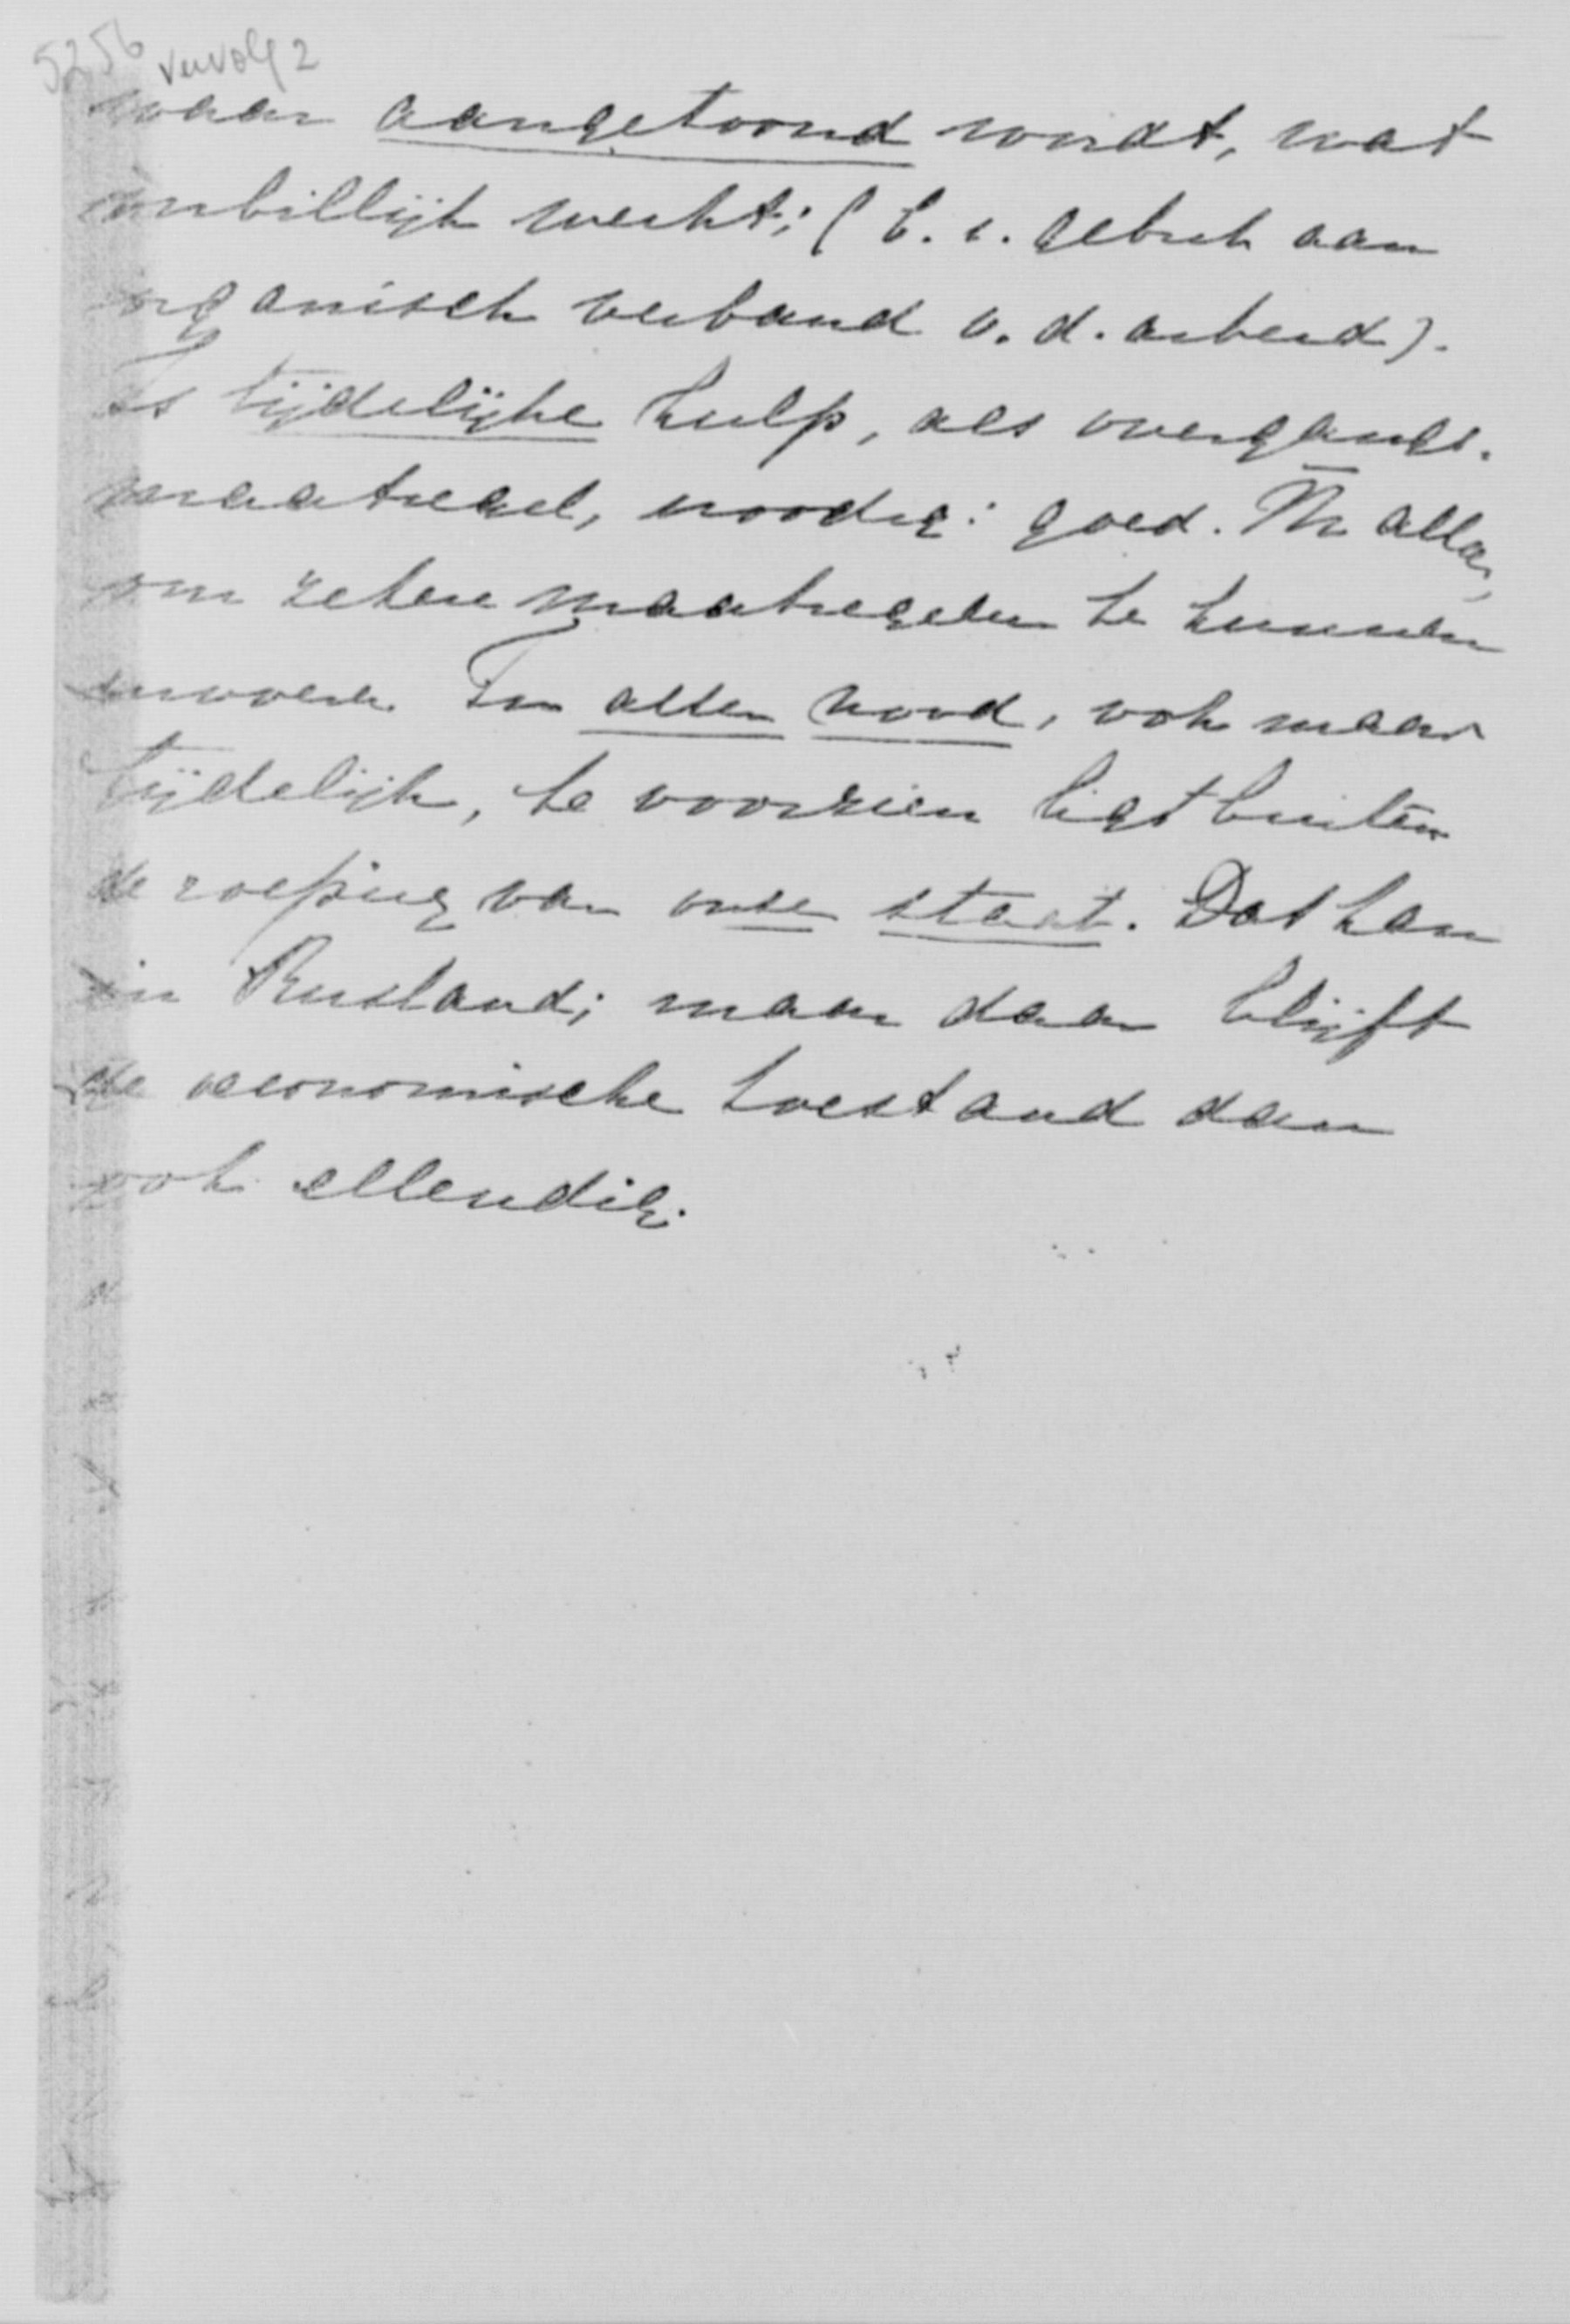 5256 vervolg 2
waar aangetoond wordt, wat
onbillijk werkt; (b.v. gebrek aan
organisch verband v. d. arbeid).
Is tijdelijke hulp, als overgangs-
maatregel, noodig: goed. M alles
om zekere maatregelen te kunnen
invoeren. In allen nood, ook maar
tijdelijk, te voorzien ligt buiten
de roeping van onze staat. Dat kan
in Rusland; maar daar blijft
de oeconomische toestand dan
ook ellendig.